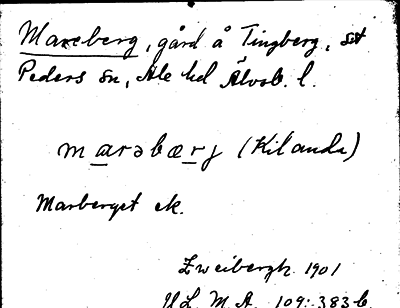 Mareberg, gård å Tingberg, S:t
Peders sn, Ale hd Älvsb. l.
marəbærj (Kilanda)
Marberget ek.
Zweibergk 1901
ULMA 109:383 b.